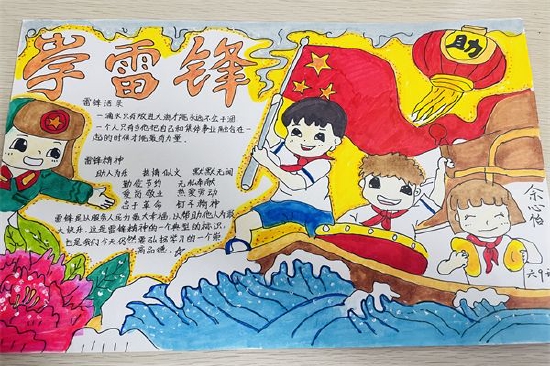 学雷锋
助
雷锋语录
一滴水只有放进大海才能永远不会干涸
一个人只有当他把自己和集体事业融合在一
起的时候才能最有力量.
雷锋精神
助人为乐 扶情似文 默默无闻
勤俭节约 无私奉献
爱岗敬业 热爱劳动
忠于革命 钉子精神
雷锋是以服务人民为最大幸福,以帮助他人为最
大快乐.这是雷锋精神的一个典型的标识.
也是我们今天仍然需弘扬学习的一个崇
高品德.
余心怡
六9